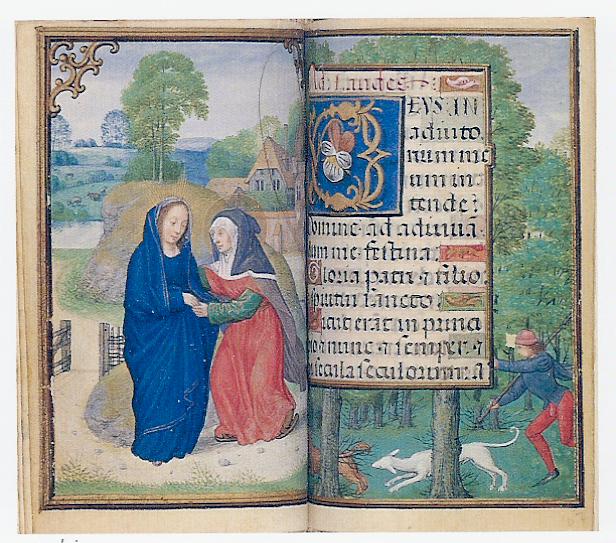 Ad laudes
DEVS IN
adiuto
rium me
um in
tende:
omine ad adiuua
dum me festina
Gloria patri ⁊ filio
spiritui sancto
Sicut erat in princi
io ⁊ nunc ⁊ semper ⁊
secula seculorum. A